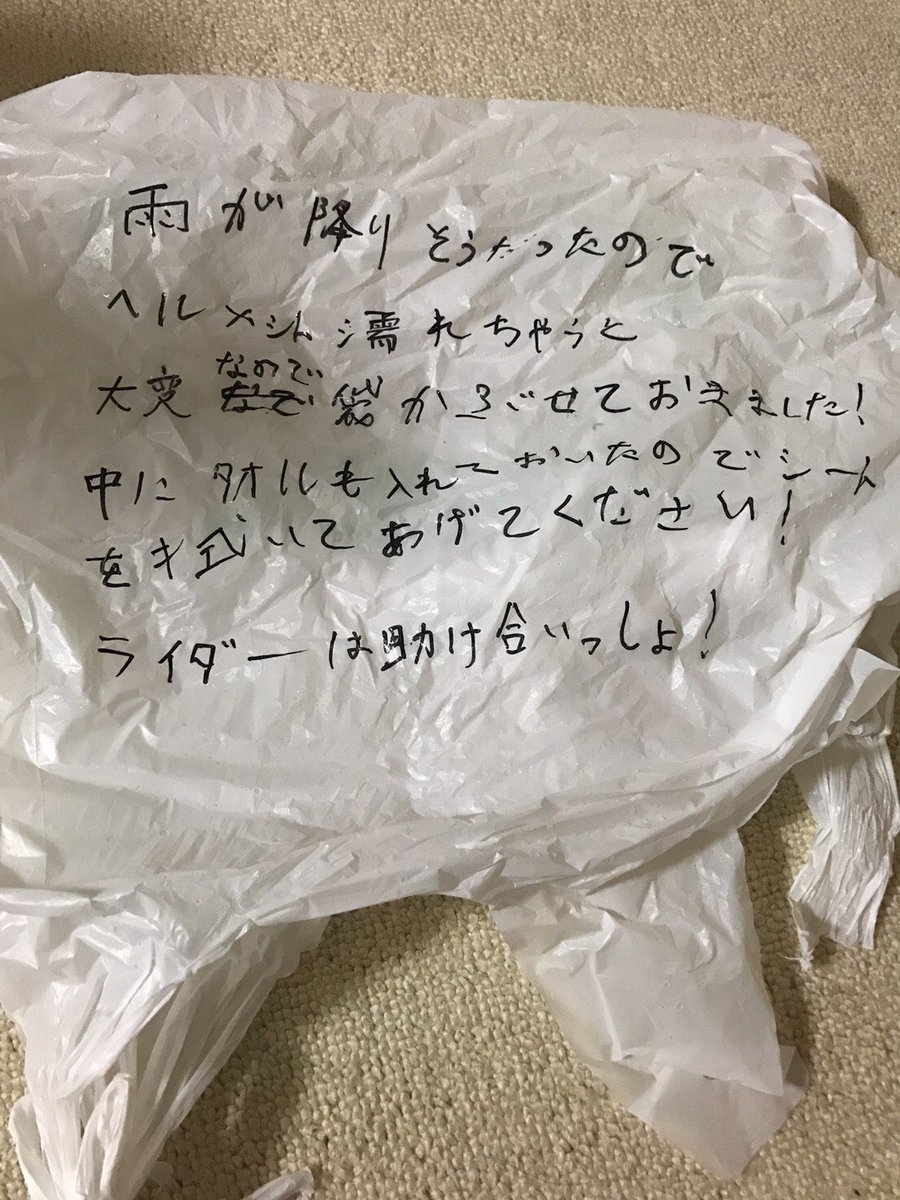 雨が降りそうだったので
ヘルメット濡れちゃうと
大変なので袋かぶせておきました!
中にタオルも入れておいたのでシート
を拭いてあげてください!
ライダーは助け合いっしょ!